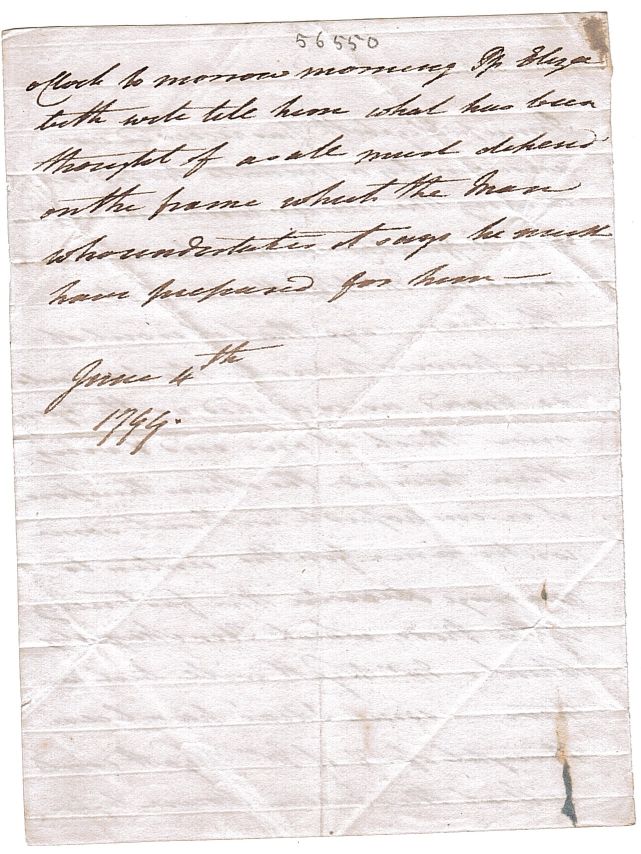 56550
oClock to morrow morning Ps Eliza
beth will tell him what has been
thought of as all must depend
on the frame which the Man
who undertakes it says he must
have prepared for him —
June 4th
1799.